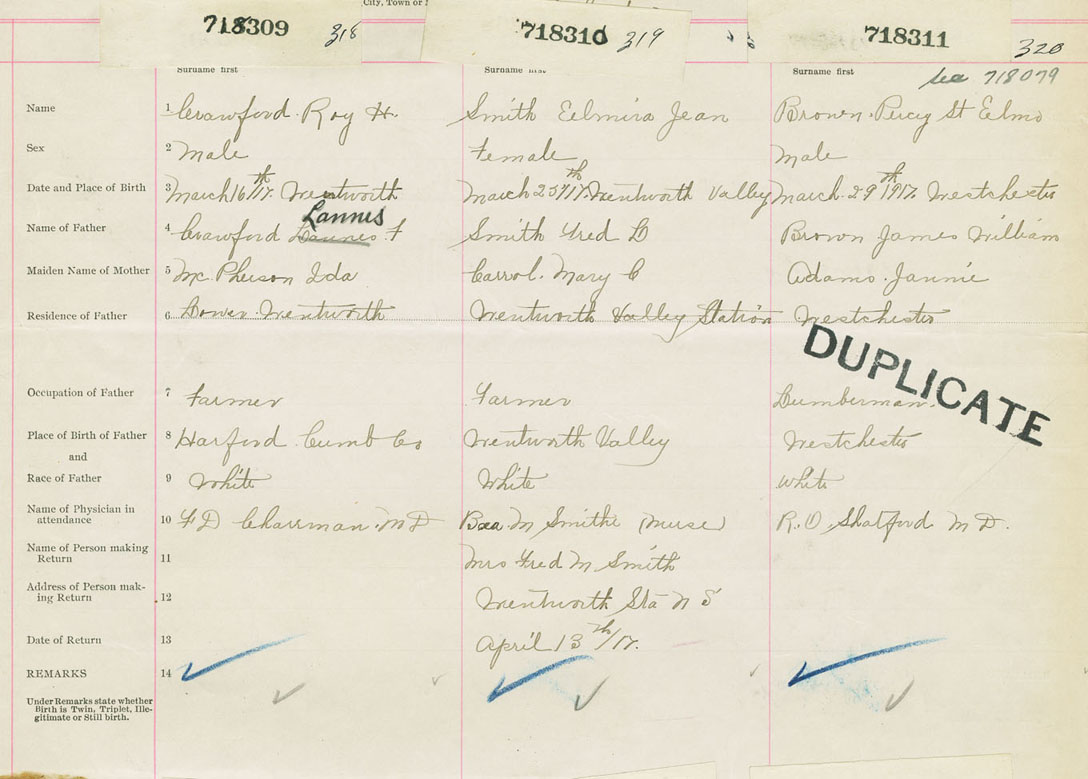 City, Town or
718309 318 718310 319 718311 320
Surname first Surname first Surname first
see 718079
Name 1 Crawford. Roy H. Smith Eelmira Jean Brown. Percy St Elmo
Sex 2 Male Female Male
Date and Place of Birth 3 March 16th/17. Wentworth March 25th/17. Wentworth Valley March. 29th 1917. Westchester
Lannes
Name of Father 4 Crawford Lannes F Smith Fred D Brown James William
Maiden Name of Mother 5 Mc Pherson Ida Carrol. Mary C Adams. Jannie
Residence of Father 6 Lower. Wentworth Wentworth Valley Station Westchester
DUPLICATE
Occupation of Father 7 Farmer Farmer Lumberman.
Place of Birth of Father 8 Harford Cumb Co Wentworth Valley Westchester
and
Race of Father 9 White White White
Name of Physician in
attendance 10 F D Charman. M D M Smithe (nurse) R. O. Shatford M D.
Name of Person making
Return 11 Mrs Fred M Smith
Address of Person mak-
ing Return 12 Wentworth Sta N S
Date of Return 13 April 13th/17.
REMARKS 14
Under Remarks state whether
Birth is Twin, Triplet, Ille-
gitimate or Still birth.